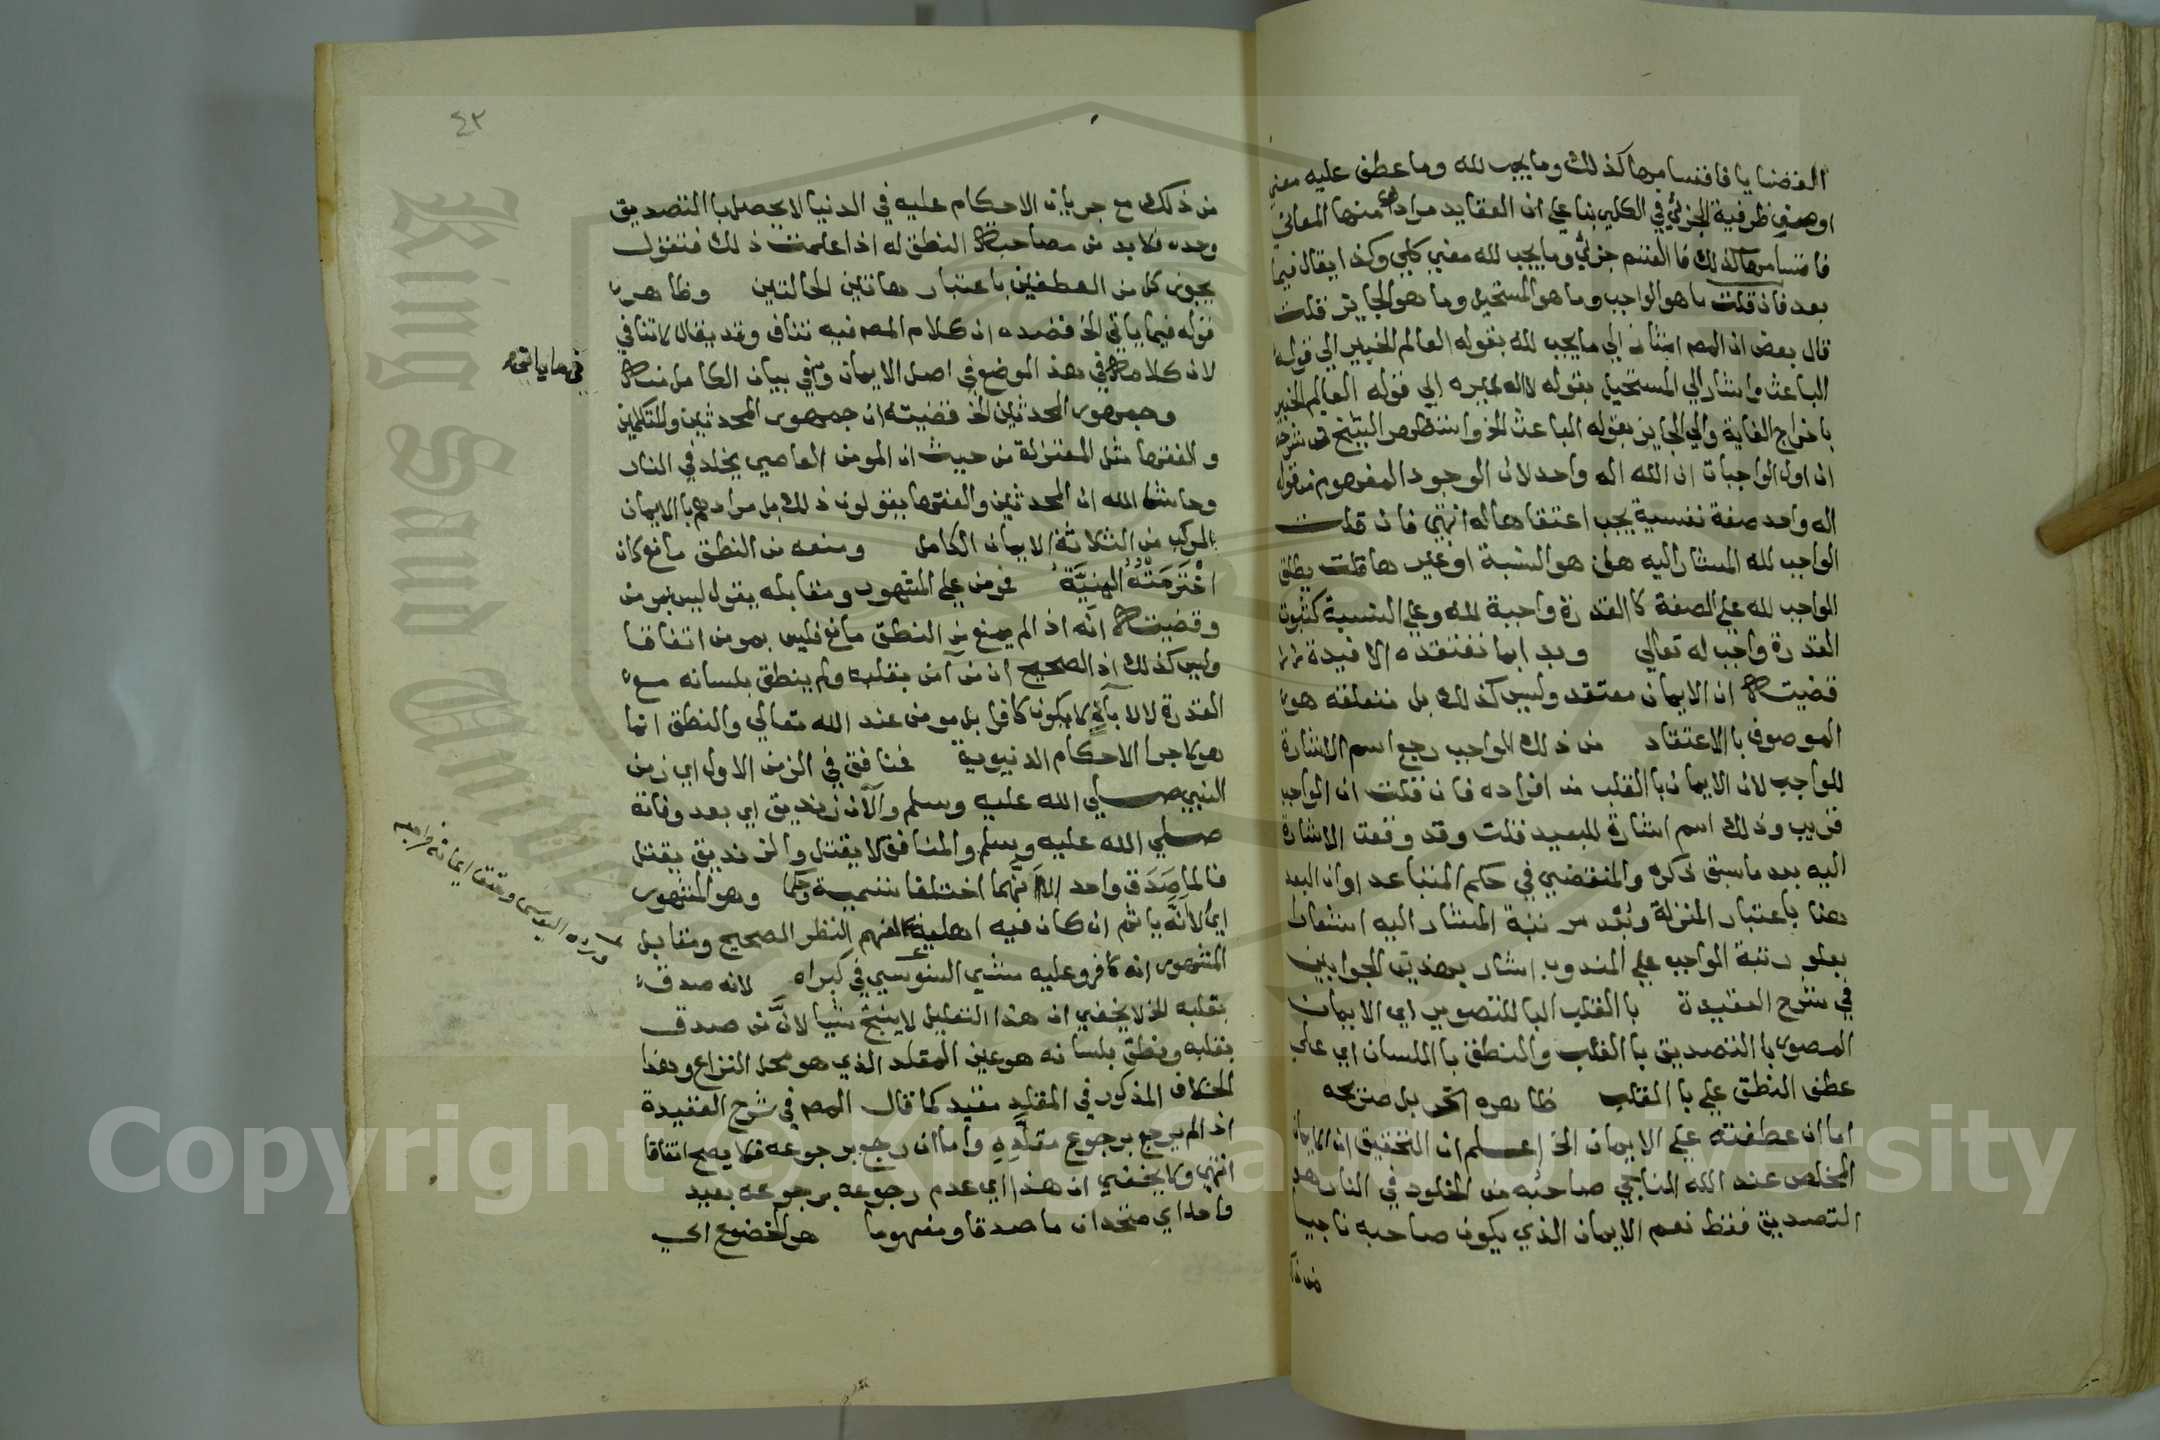 القضايا فاقسامها كذلك وما يجب لله وما عطف عليه معنى
اوهي ظرفية الجزئي في الكلي بنا على ان العقايد مراد منها المعاني
فاقسامها كذلك فالقسم جزئي وما يجب لله معنى كلي وكذا يقال فيما
بعد فان قلت ما هو الواجب وما هو المستحيل وما هو الجايز قلت
قال بعض ان المصـ اشار الى ما يجب لله بقوله العالم الخبير الى قوله
الباعث واشار الى المستحيل بقوله لا اله غيره الى قوله العالم الخبير
باخراج الغاية والى الجايز بقوله الباعث الخ واستظهر الشيخ في شرحه
ان اول الواجبات ان الله اله واحد لان الوجود المفهوم من قوله
اله واحد صفة نفسية يجب اعتقادها له انتهى فان قلت
الواجب لله المشار اليه هل هو النسبة او غيرها قلت يطلق
الواجب لله على الصفة كالقدرة واجبة لله وعلى النسبة كثبوت
القدرة واجب له تعالى وبدا بما تعتقده الافيدة
قضيته ان الايمان معتقد وليس كذلك بل متعلقه هو
الموصوف بالاعتقاد من ذلك الواجب رجع اسم الاشارة
للواجب لان الايمان بالقلب من افراده فان قلت ان الواجب
قريب وذلك اسم اشارة للبعيد قلت وقد وقعت الاشارة
اليه بعد ما سبق ذكره والمنقضي في حكم المتباعد او ان البعد
هنا باعتبار المنزلة وبعد مرتبة المشار اليه اشعارا
بعلو رتبة الواجب على المندوب اشار بهذين الجوابين
في شرح العقيدة بالقلب البا للتصوير اي الايمان
المصور بالتصديق بالقلب والنطق باللسان اي على
عطف النطق على بالقلب ظاهره اتحد بل صريحه
اما ان عطفته على الايمان الخ اعلم ان التحقيق ان الايمان
المخلص عند الله الناجي صاحبه من الخلود في النار هو
التصديق فقط نعم الايمان الذي يكون صاحبه ناجيا
من ذلك
٤٣
من ذلك مع جريان الاحكام عليه في الدنيا لا يحصل بالتصديق
وحده فلا بد من مصاحبة النطق له اذا علمت ذلك فتقول
يجوز كل من العطفين باعتبار هاتين الحالتين وظاهر
قوله فيما ياتي الخ قصده ان كلام المصـ فيه تناف وقد يقال لا تنافي
لان كلامه في هذ الموضع في اصل الايمان وفي بيان الكامل منه
في ما ياتي
وجمهور المحدثين الخ قضيته ان جمهور المحدثين والمتكلمين
والفقها مثل المعتزلة من حيث ان المومن العاصي يخلد في النار
وحاشا لله ان المحدثين والفقها يقولون ذلك بل مرادهم بالايمان
المركب من الثلاثة الايمان الكامل ومنعه من النطق مانع كان
اخترمته المنية فومن على المشهور ومقابله يقول ليس بمومن
وقضيته انه اذ الم يمنع من النطق مانع فليس بمومن اتفاقا
وليس كذلك اذ الصحيح ان من آمن بقلبه ولم ينطق بلسانه مع
القدرة لا لابآء لا يكون كافرا بل مومن عند الله تعالى والنطق انما
هو لاجرا الاحكام الدنيوية فمنافق في الزمن الاول اي زمن
النبي صلى الله عليه وسلم والآن زنديق اي بعد وفاته
صلى الله عليه وسلم والمنافق لا يقتل والزنديق يقتل
فالماصدق واحد الا انهما اختلفا تسمية وحكما وهو المشهور
اي لانه ياثم ان كان فيه اهلية لفهم النظر الصحيح ومقابل
المشهور انه كافر وعليه مشى السنوسي في كبراه لانه صدق
بقلبه الخ لا يخفى ان هذا التعليل لا ينتج شيا لان من صدق
بقلبه ونطق بلسانه هو عين المقلد الذي هو محل النزاع وهذا
الخلاف المذكور في المقلد مقيد كما قال المصـ في شرح العقيدة
اذ الم يرجع برجوع مقلده واما ان رجع برجوعه فلا يصح اتفاقا
انتهى ولا يخفى ان هذا اي عدم رجوعه برجوعه بعيد
واحد اي متحدان ماصدقا ومفهوما هو الخضوع اي